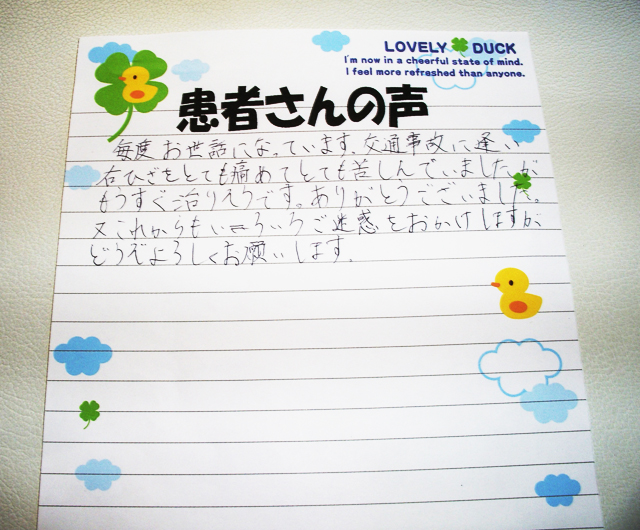 LOVELY DUCK
I'm now in a cheerful state of mind.
I feel more refreshed than anyone.
患者さんの声
毎度お世話になっています。交通事故に逢い
右ひざをとても痛めてとても苦しんでいましたが
もうすぐ治りそうです。ありがとうございました。
又これからもいろいろご迷惑をおかけしますが
どうぞよろしくお願いします。